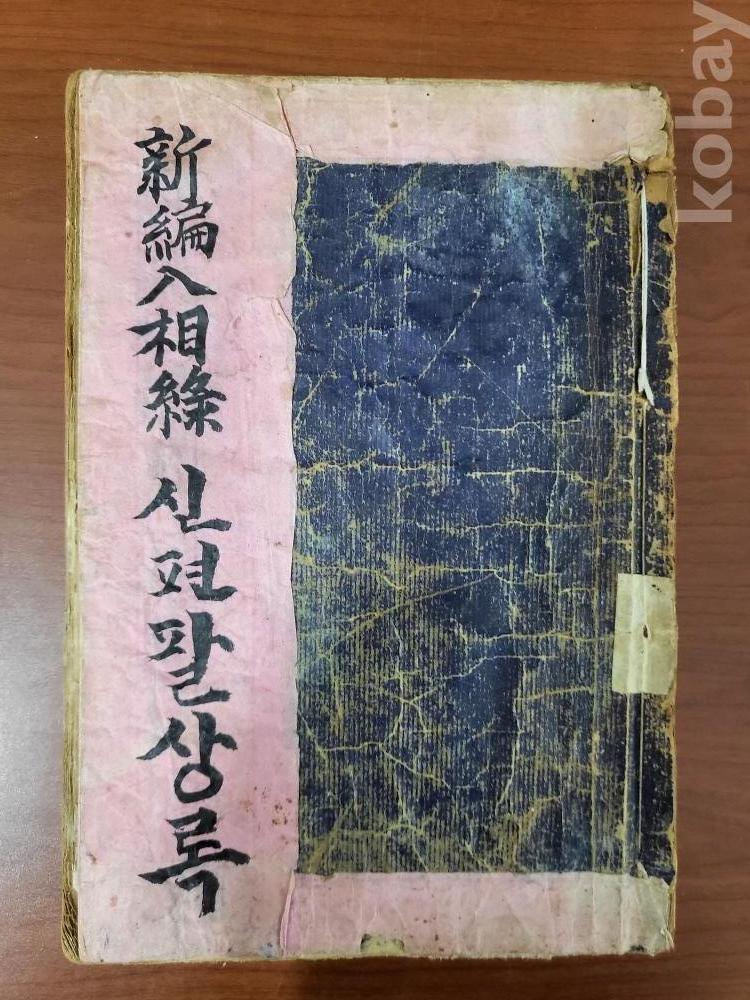 新編八相錄 신편팔상록
kobay